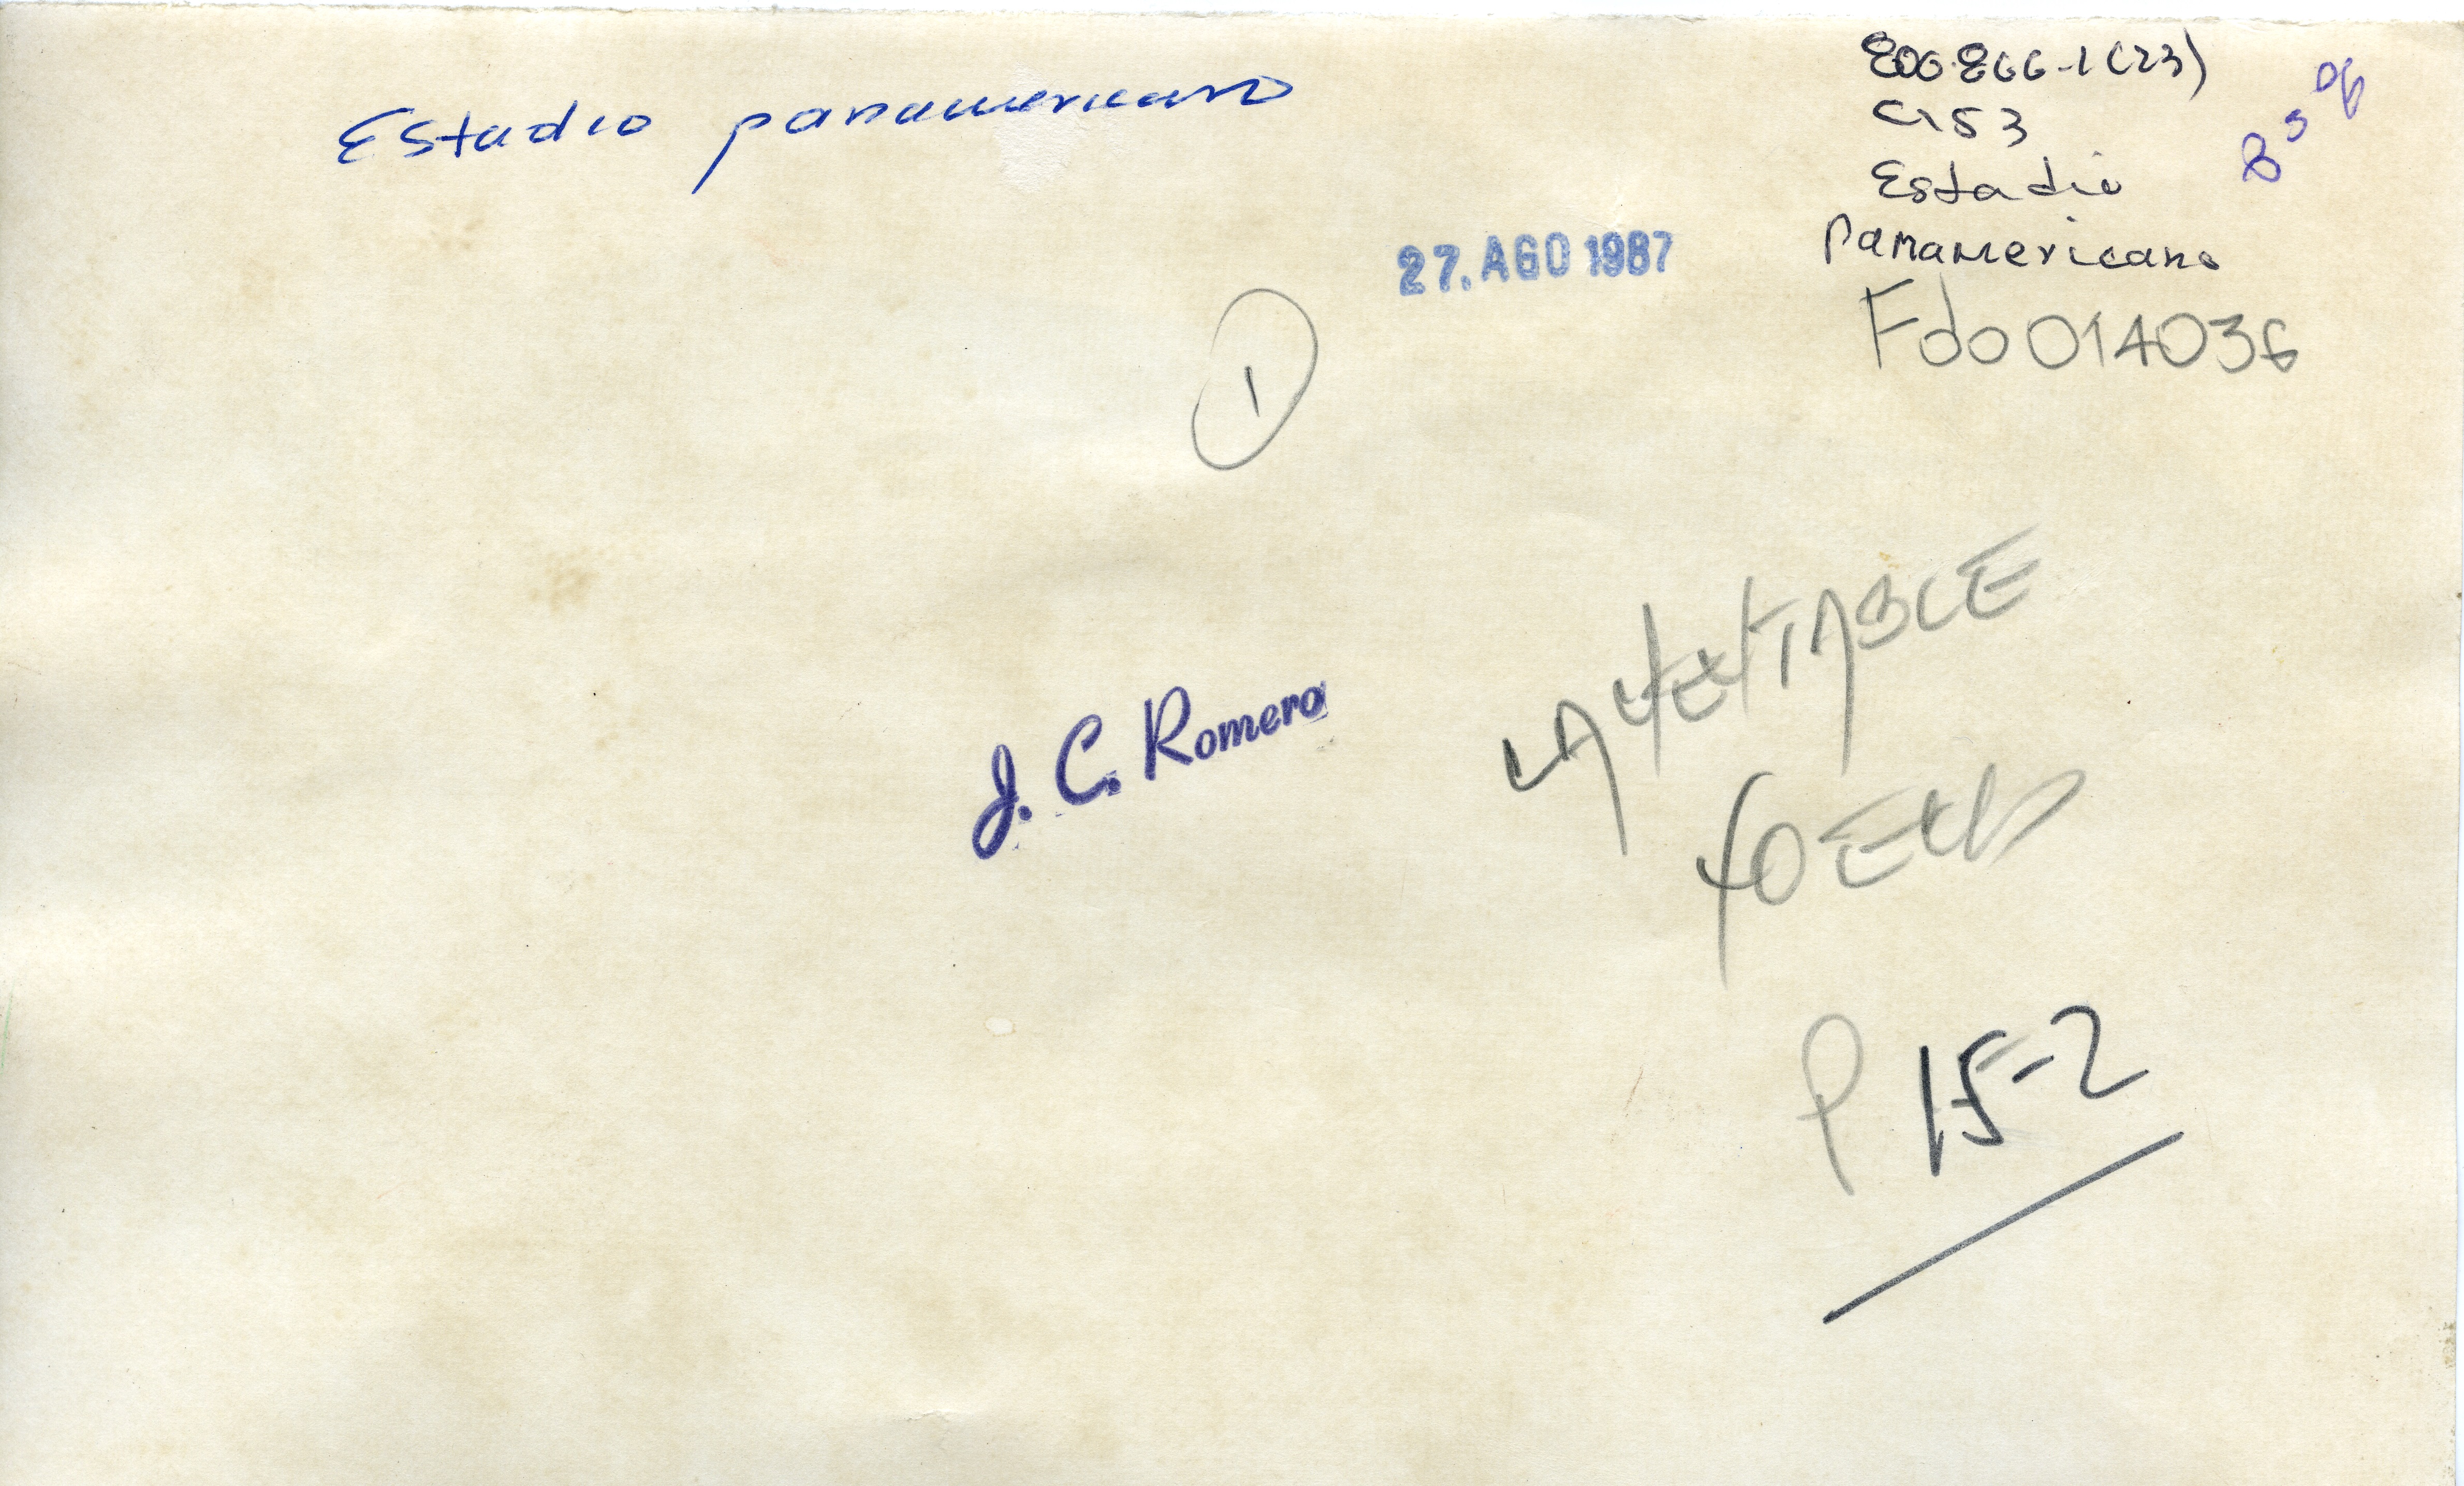 Estadio panamericano
800.866-1(23)
C153
Estadio
Panamericano
Fdo 014036
27. AGO 1987
1
J. C. Romero
LAMENTABLE
P 15-2